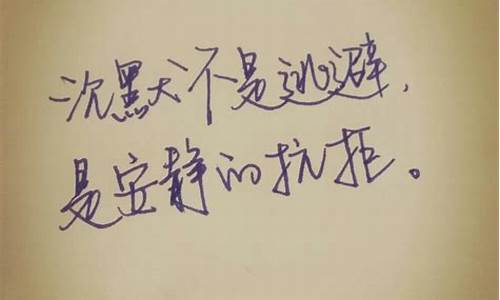 沉默不是逃避，
是安静的抗拒。